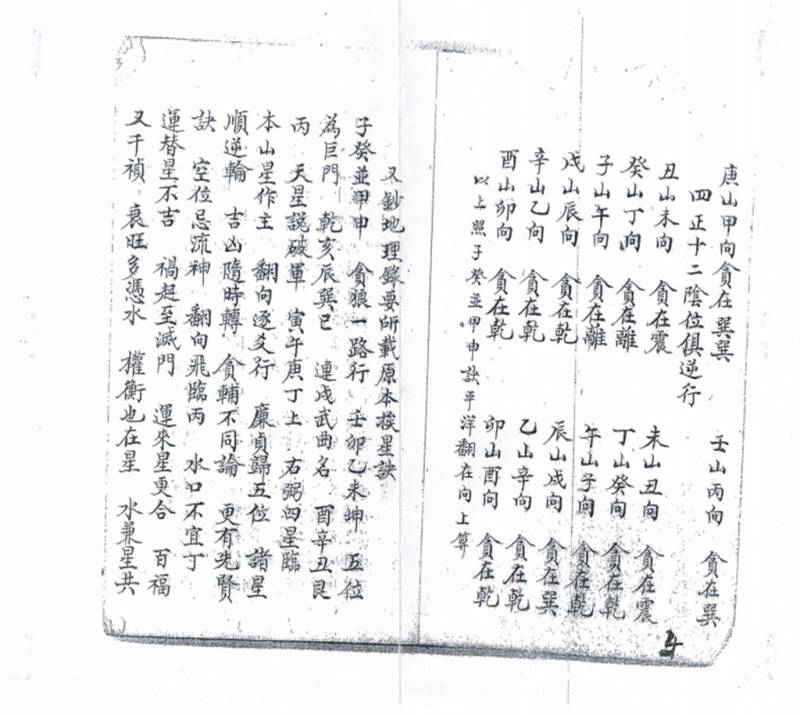 庚山甲向貪在巽巽 壬山丙向 貪在巽
四正十二陰位俱逆行
丑山未向 貪在震 未山丑向 貪在震
癸山丁向 貪在離 丁山癸向 貪在乾
子山午向 貪在離 午山子向 貪在乾
戌山辰向 貪在乾 辰山戌向 貪在巽
辛山乙向 貪在乾 乙山辛向 貪在乾
酉山卯向 貪在乾 卯山酉向 貪在乾
以上照子癸並甲申訣平洋翻在向上算
又鈔地理錄要所載原本挨星訣
子癸並甲申 貪狼一路行 壬卯乙未坤 五位
為巨門 乾亥辰巽巳 連戌武曲名 酉辛丑艮
丙 天星說破軍 寅午庚丁上 右弼四星臨
本山星作主 翻向逐爻行 廉貞歸五位 諸星
順逆輪 吉凶隨時轉 貪輔不同論 更有先賢
訣 空位忌流神 翻向飛臨丙 水口不宜丁
運替星不吉 禍起至滅門 運來星更合 百福
又千禎 衰旺多憑水 權衡也在星 水兼星共